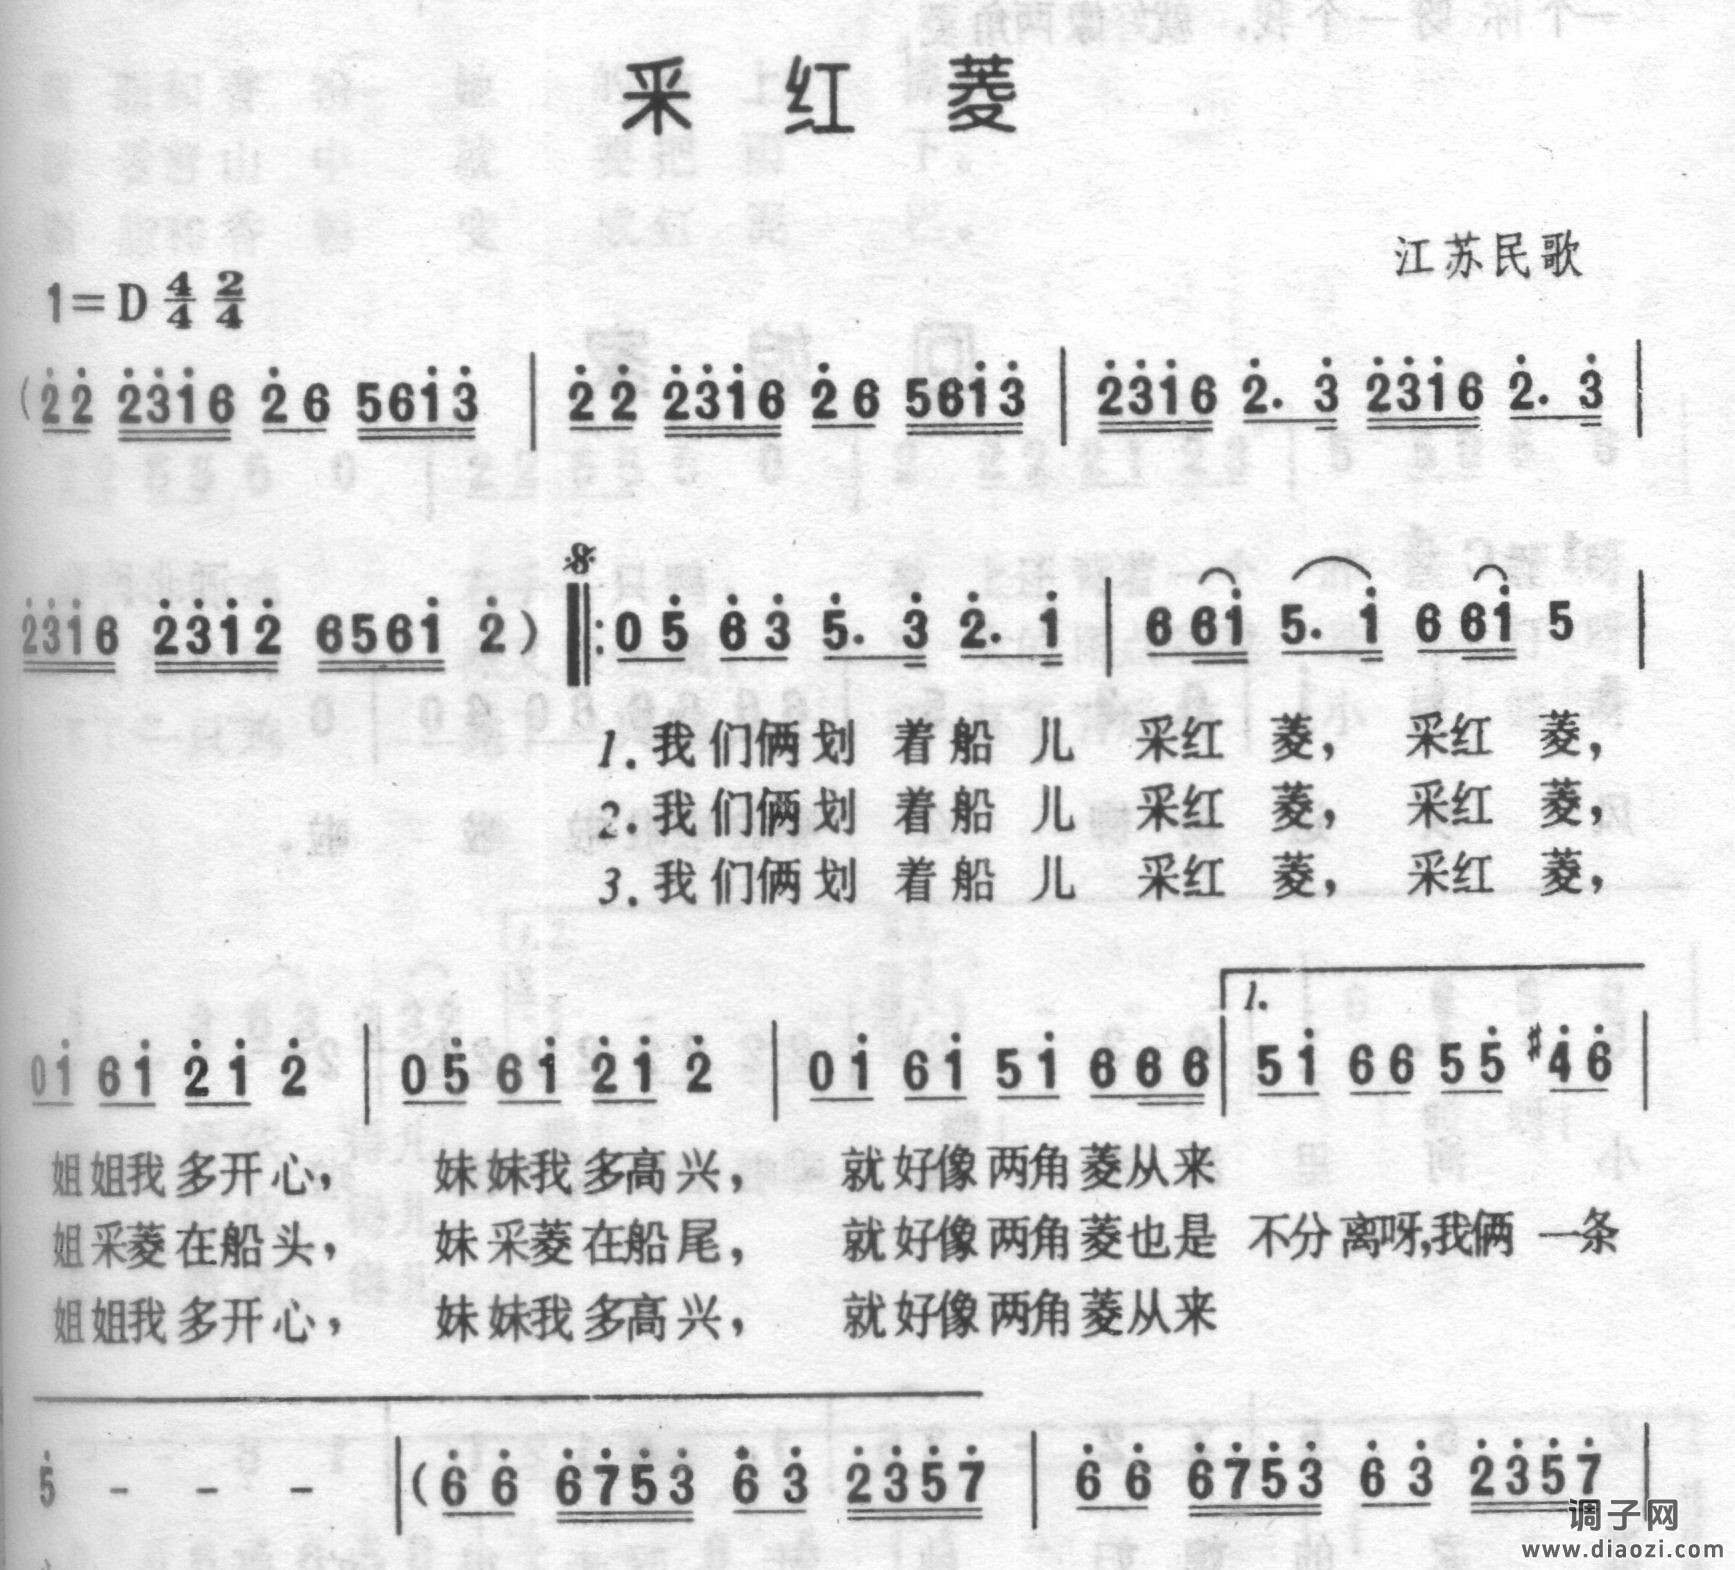 采红菱
江苏民歌
1=D 4/4 2/4
(2̇2̇ 2̇3̇1̇6 2̇6 561̇3̇ | 2̇2̇ 2̇3̇1̇6 2̇6 561̇3̇ | 2̇3̇1̇6 2̇. 3̇ 2̇3̇1̇6 2̇. 3̇ |
2̇3̇1̇6 2̇3̇1̇2̇ 6561̇ 2̇) 𝄋 ‖: 05̇ 6̇3̇ 5̇. 3̇ 2̇. 1̇ | 661̇ 5. 1̇ 661̇ 5 |
1.我们俩划 着船儿 采红 菱, 采红 菱,
2.我们俩划 着船儿 采红 菱, 采红 菱,
3.我们俩划 着船儿 采红 菱, 采红 菱,
1.
01̇ 61̇ 2̇1̇ 2̇ | 05̇ 61̇ 2̇1̇ 2̇ | 01̇ 61̇ 51̇ 666 | 51̇ 66 55̇ #4̇6̇ |
姐姐我多开心, 妹妹我多高兴, 就好像两角菱从来
姐采菱在船头, 妹采菱在船尾, 就好像两角菱也是 不分离呀,我俩一条
姐姐我多开心, 妹妹我多高兴, 就好像两角菱从来
5̇ - - - | (6̇6̇ 6̇7̇5̇3̇ 6̇3̇ 2̇3̇5̇7̇ | 6̇6̇ 6̇7̇5̇3̇ 6̇3̇ 2̇3̇5̇7̇ |
调子网
www.diaozi.com